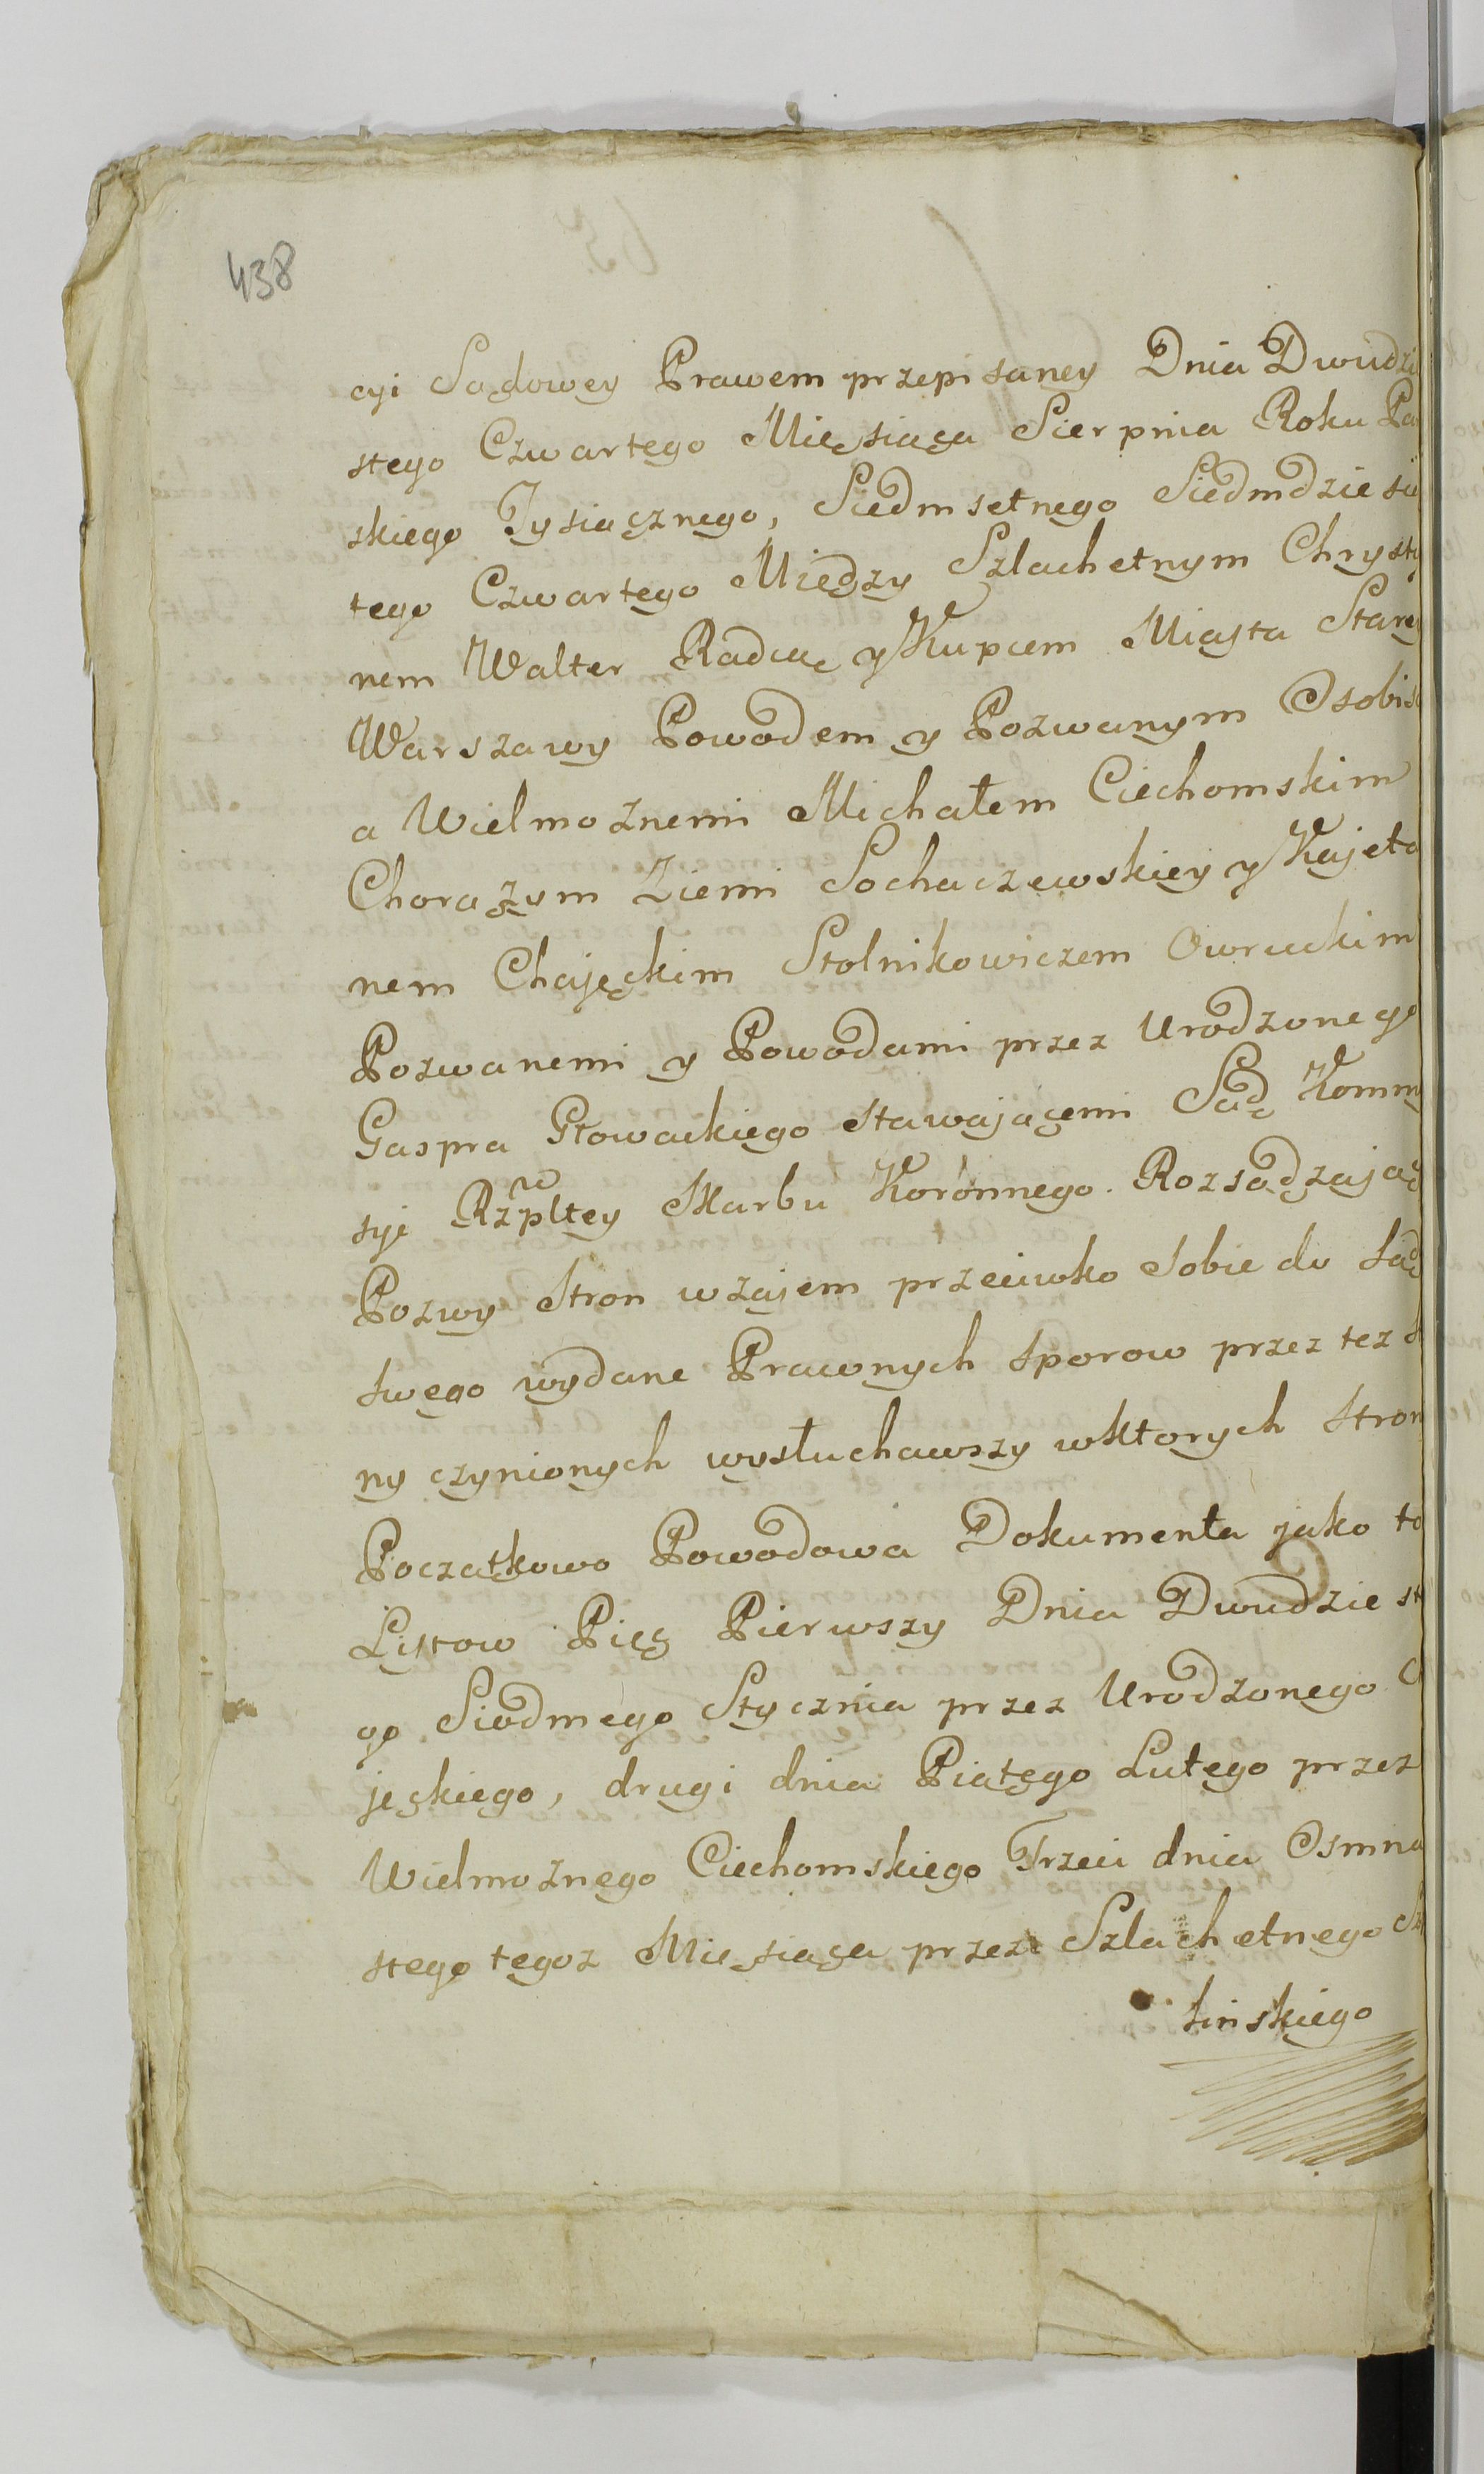 438
cyi Sądowey Prawem przepisaney Dnia Dwudzie
stego Czwartego Miesiąca Sierpnia Roku Pań
skiego Tysiącznego, Siedmsetnego Siedmdziesią
tego Czwartego Między Szlachetnym Chrysty
nem Walter Radcą y Kupcem Miasta Starey
Warszawy Powodem y Pozwanym Osobiś
a Wielmożnemi Michałem Ciechomskim
Chorążym Ziemi Sochaczewskiey y Kajeta
nem Chajęckim Stolnikowiczem Owruckim
Pozwanemi y Powodami przez Urodzonego
Gaspra Głowackiego stawającemi Sąd Kommi
syi Rzpltey Skarbu Koronnego. Rozsądzając
Pozwy Stron wzajem przeciwko sobie do sąd
swego wydane Prawnych sporow przez tez
ny czynionych wysłuchawszy wktorych Stron
Początkowo Powodowa Dokumenta jako to
Listow Pięc Pierwszy Dnia Dwudziest
ogo Siodmego Stycznia przez Urodzonego
jęckiego, drugi dnia Piątego Lutego przez
Wielmożnego Ciechomskiego Trzeci dnia Osmna
stego tegoz Miesiąca przez Szlachetnego
sinskiego